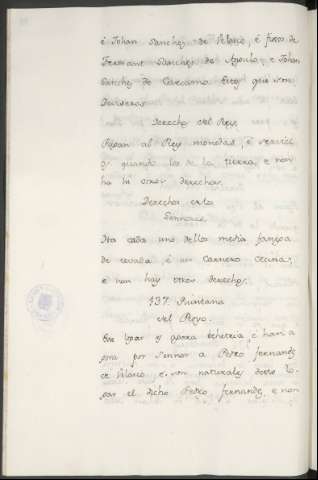 é Johan Sanches de Velasco, é fijos de
Ferrant Sanches de Angulo, e Johan
Sanches de Carcamo los que son
Deviseros.
Derecho del Rey.
Pagan al Rey monedas, é servici
os quando los de la tierra, e non
ha hi otros derechos.
Derechos de los
Sennores.
Da cada uno dellos media fanega
de cevada é un carnero cecina,
e non hay otros derechos.
137. Quintana
del Poyo.
Este logar es behetria, é han a
ora por sennor a Pedro fernandez
de Velasco e son naturales deste lo-
gar el dicho Pedro fernandez, e non